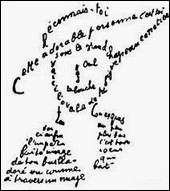 Reconnais-toi
Cette adorable personne c'est toi
sous le grand chapeau canotier
Œil
la bouche
l'ovale de
ta figure
Cou exquis
ci enfin
l'imparf
faite image
de ton buste a
doré vu comme
à travers un nuage
un peu
plus bas
c'est ton
cœur
qui
bat